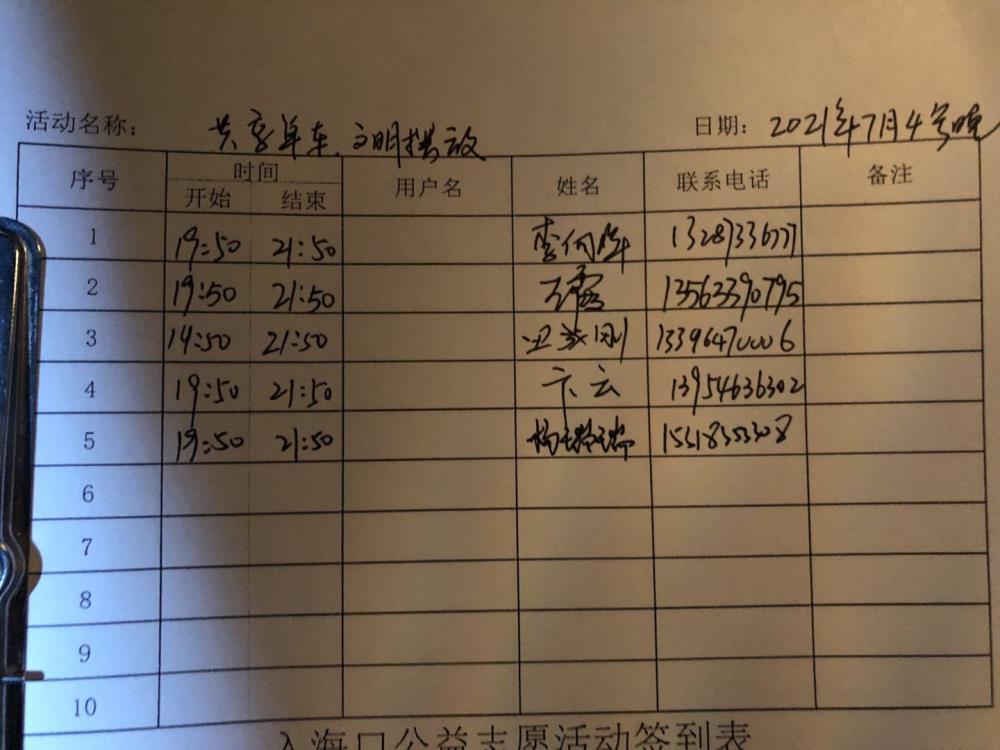 活动名称： 共享单车、文明摆放 日期： 2021年7月4号晚
序号 时间 用户名 姓名 联系电话 备注
开始 结束
1 19:50 21:50 13287336777
2 19:50 21:50 王露 13563390795
3 19:50 21:50 13396470006
4 19:50 21:50 卞云 13954636302
5 19:50 21:50
6
7
8
9
10
入海口公益志愿活动签到表